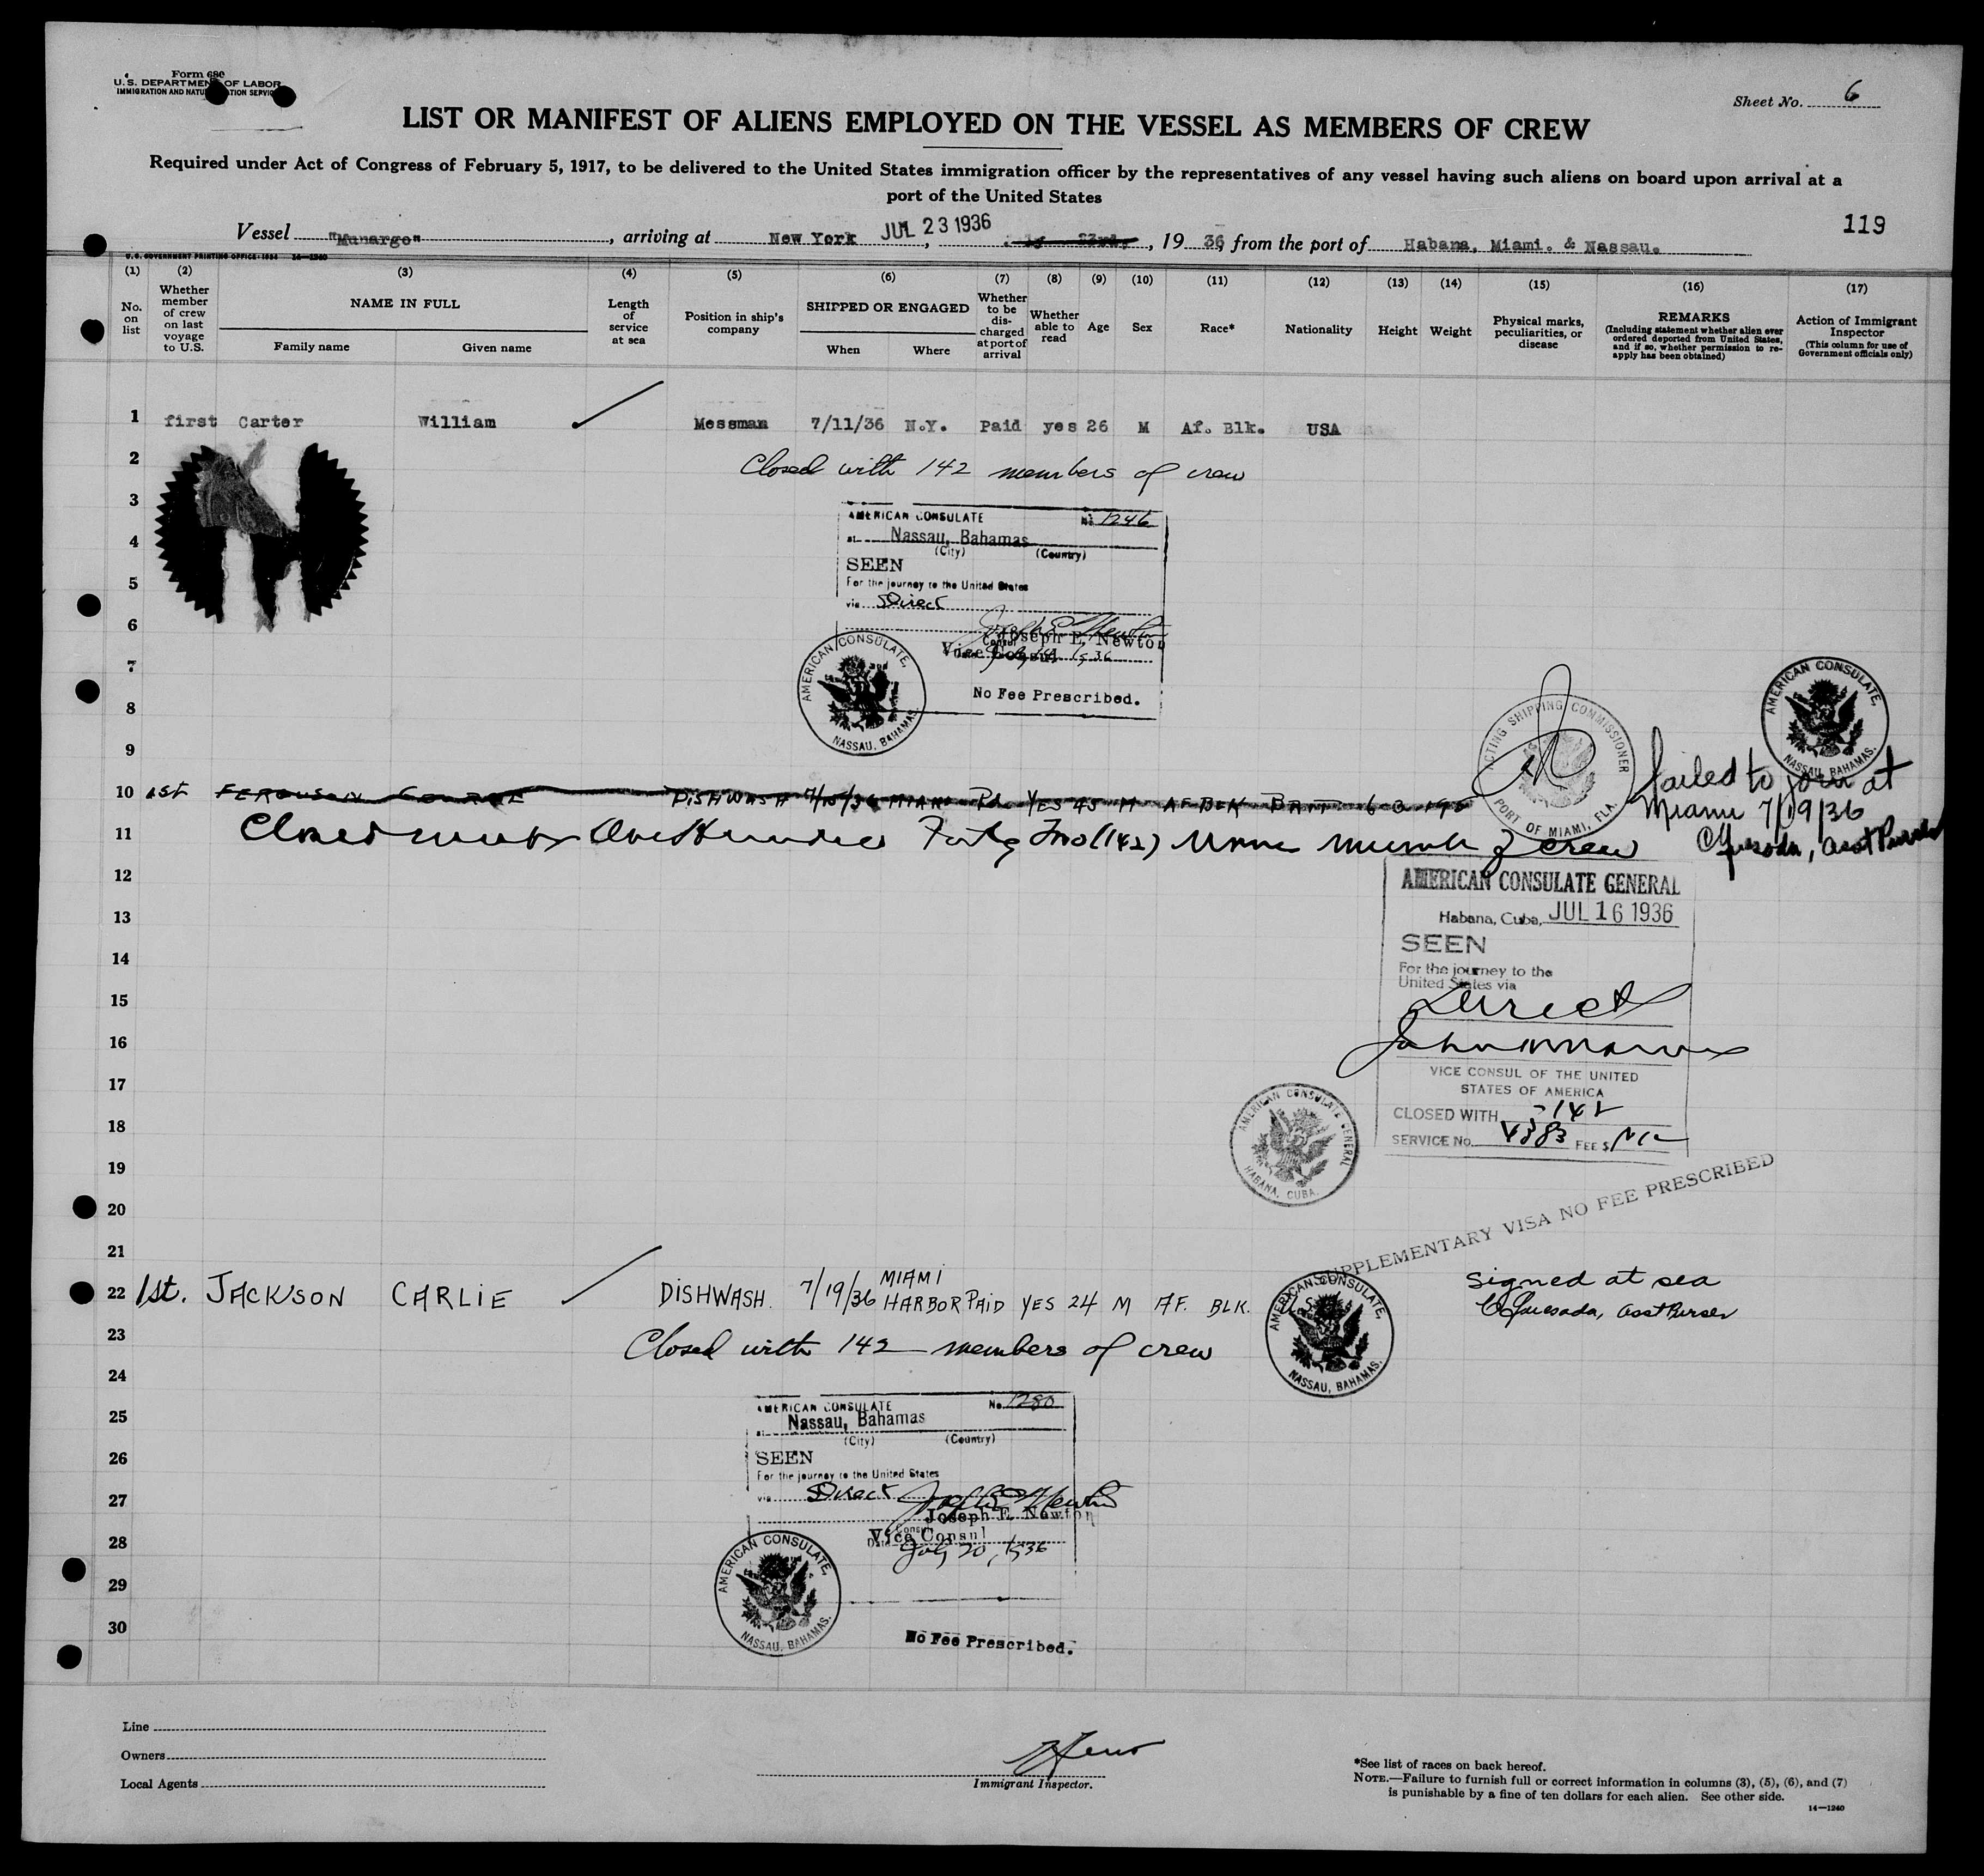 Form 680
U.S. DEPARTMENT OF LABOR
IMMIGRATION AND NATURALIZATION SERVICE
Sheet No. 6
LIST OR MANIFEST OF ALIENS EMPLOYED ON THE VESSEL AS MEMBERS OF CREW
Required under Act of Congress of February 5, 1917, to be delivered to the United States immigration officer by the representatives of any vessel having such aliens on board upon arrival at a
port of the United States
119
Vessel "Munargo", arriving at New York JUL 23 1936, 1936, from the port of Habana, Miami. & Nassau.
U.S. GOVERNMENT PRINTING OFFICE: 1934 14-1240
(1) (2) (3) (4) (5) (6) (7) (8) (9) (10) (11) (12) (13) (14) (15) (16) (17)
No. on list
Whether member of crew on last voyage to U.S.
NAME IN FULL
Family name
Given name
Length of service at sea
Position in ship's company
SHIPPED OR ENGAGED
When
Where
Whether to be discharged at port of arrival
Whether able to read
Age
Sex
Race*
Nationality
Height
Weight
Physical marks, peculiarities, or disease
REMARKS
(Including statement whether alien ever ordered deported from United States, and if so, whether permission to re-apply has been obtained)
Action of Immigrant Inspector
(This column for use of Government officials only)
1 first Carter William Messman 7/11/36 N.Y. Paid yes 26 M Af. Blk. USA
2 Closed with 142 members of crew
3
AMERICAN CONSULATE No. 1246
4
at Nassau, Bahamas
(City) (Country)
5
SEEN
For the journey to the United States
via Direct
6
Joseph E. Newton
Vice Consul
7
No Fee Prescribed.
8
AMERICAN CONSULATE, NASSAU, BAHAMAS.
9
ACTING SHIPPING COMMISSIONER PORT OF MIAMI, FLA.
AMERICAN CONSULATE, NASSAU, BAHAMAS.
10 1st FERGUSON GEORGE DISHWASH 7/15/36 MIAMI Pd YES 45 M AF BLK BRIT 6-0 190
failed to join at
Miami 7/19/36
C Quesada, Asst Purser
11 Closed with One Hundred Forty Two (142) members of crew
12
AMERICAN CONSULATE GENERAL
13
Habana, Cuba, JUL 16 1936
SEEN
14
For the journey to the
United States via
15
Direct
16
17
VICE CONSUL OF THE UNITED
STATES OF AMERICA
CLOSED WITH 142
18
SERVICE No. 4383 FEE $ Nil
AMERICAN CONSULATE GENERAL HABANA, CUBA.
19
20
SUPPLEMENTARY VISA NO FEE PRESCRIBED
21
22 1st. JACKSON CARLIE DISHWASH. 7/19/36 MIAMI HARBOR PAID YES 24 M AF. BLK.
Signed at sea
C Quesada, Asst Purser
AMERICAN CONSULATE, NASSAU, BAHAMAS.
23 Closed with 142 members of crew
24
AMERICAN CONSULATE No. 1280
25
at Nassau, Bahamas
(City) (Country)
26
SEEN
For the journey to the United States
27
via Direct
Joseph E. Newton
28
Vice Consul
Date July 20, 1936
29
AMERICAN CONSULATE, NASSAU, BAHAMAS.
30
No Fee Prescribed.
Line
Owners
Local Agents
Immigrant Inspector.
*See list of races on back hereof.
NOTE.—Failure to furnish full or correct information in columns (3), (5), (6), and (7)
is punishable by a fine of ten dollars for each alien. See other side.
14—1240